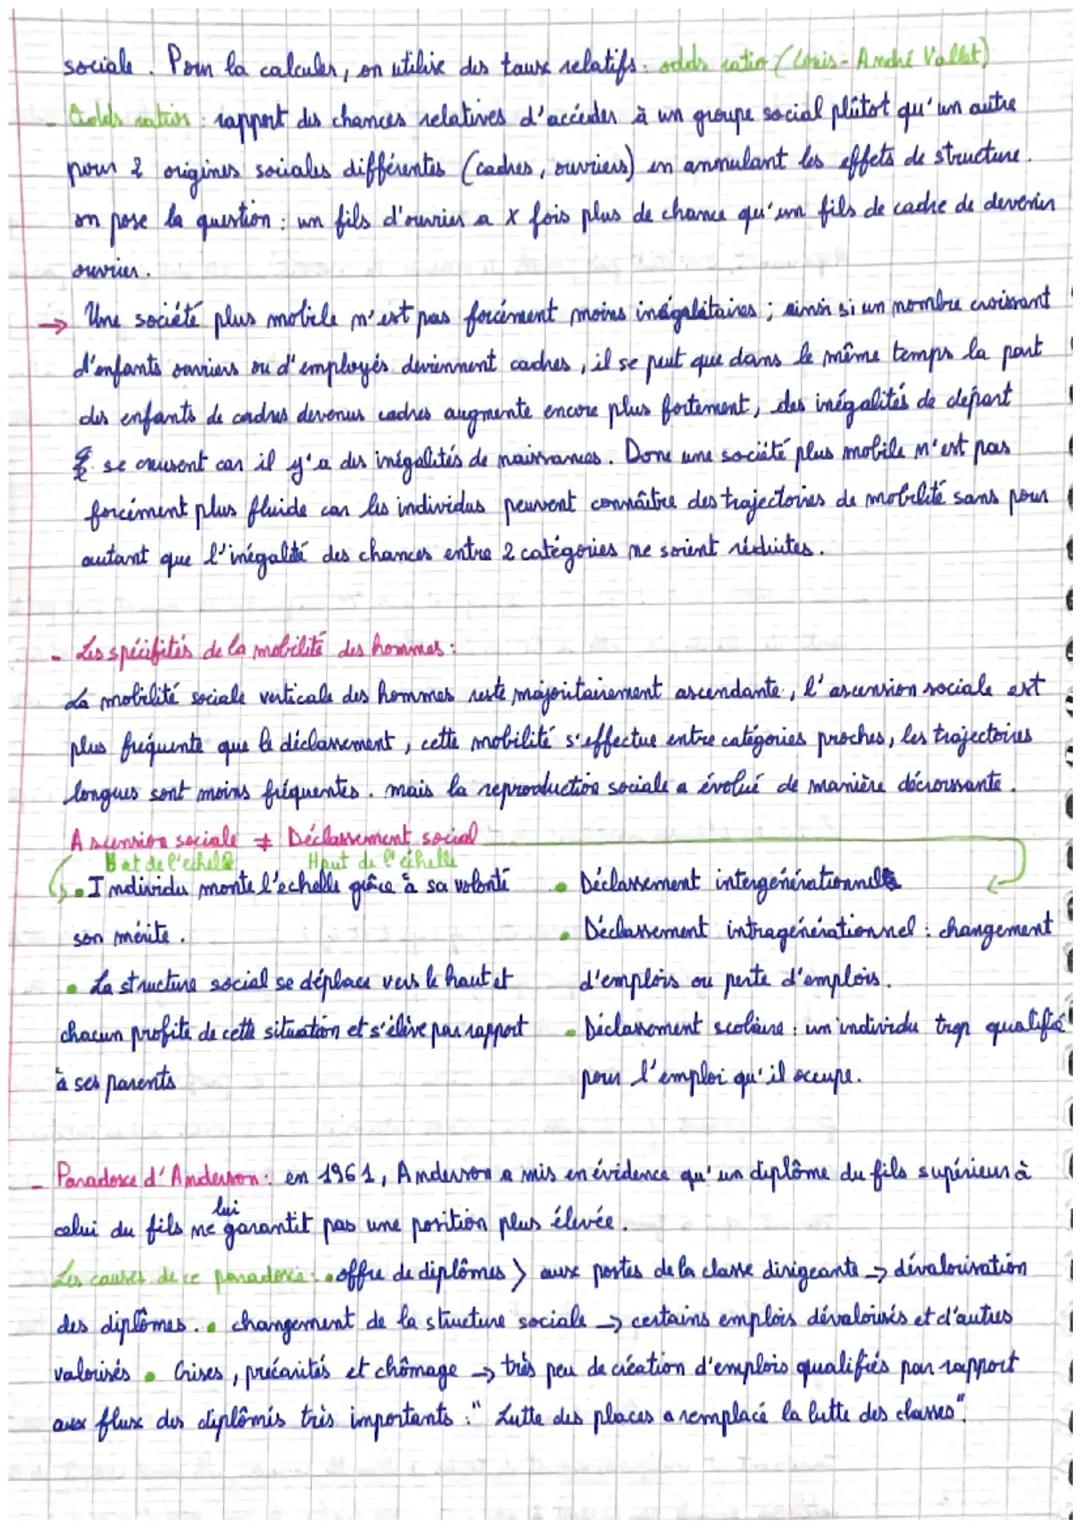 sociale. Pour la calculer, on utilise des taux relatifs : odds ratio (Louis-André Vallet)
- Odds ratios : rapport des chances relatives d'accéder à un groupe social plûtot qu'un autre
pour 2 origines sociales différentes (cadres, ouvriers) en annulant les effets de structure.
on pose la question : un fils d'ouvrier a x fois plus de chance qu'un fils de cadre de devenir
ouvrier.
→ Une société plus mobile n'est pas forcément moins inégalitaires ; ainsi si un nombre croissant
d'enfants ouvriers ou d'employés deviennent cadres, il se peut que dans le même temps la part
des enfants de cadres devenus cadres augmente encore plus fortement, des inégalités de départ
se creusent car il y'a des inégalités de naissances. Donc une société plus mobile n'est pas
forcément plus fluide car les individus peuvent connaître des trajectoires de mobilité sans pour
autant que l'inégalité des chances entre 2 catégories ne soient réduites.
- Les spécifités de la mobilité des hommes :
La mobilité sociale verticale des hommes reste majoritairement ascendante, l'ascension sociale est
plus fréquente que le déclassement, cette mobilité s'effectue entre catégories proches, les trajectoires
longues sont moins fréquentes. mais la reproduction sociale a évolué de manière décroissante.
Ascension sociale ≠ Déclassement social
Bat de l'echelle Haut de l'échelle
• Individu monte l'echelle grâce à sa volonté
son mérite.
• La structure social se déplace vers le haut et
chacun profite de cette situation et s'élève par rapport
à ses parents
• Déclassement intergénérationnel
• Déclassement intragénérationnel : changement
d'emplois ou perte d'emplois.
• Déclassement scolaire : un individu trop qualifié
pour l'emploi qu'il occupe.
- Paradoxe d'Anderson : en 1961, Anderson a mis en évidence qu'un diplôme du fils supérieur à
celui du fils ne lui garantit pas une position plus élevée.
Les causes de ce paradoxe : • offre de diplômes > aux postes de la classe dirigeante → dévalorisation
des diplômes. • changement de la structure sociale → certains emplois dévalorisés et d'autres
valorisés • Crises, précarités et chômage → très peu de création d'emplois qualifiés par rapport
aux flux des diplômés très importants : "Lutte des places a remplacé la lutte des classes".